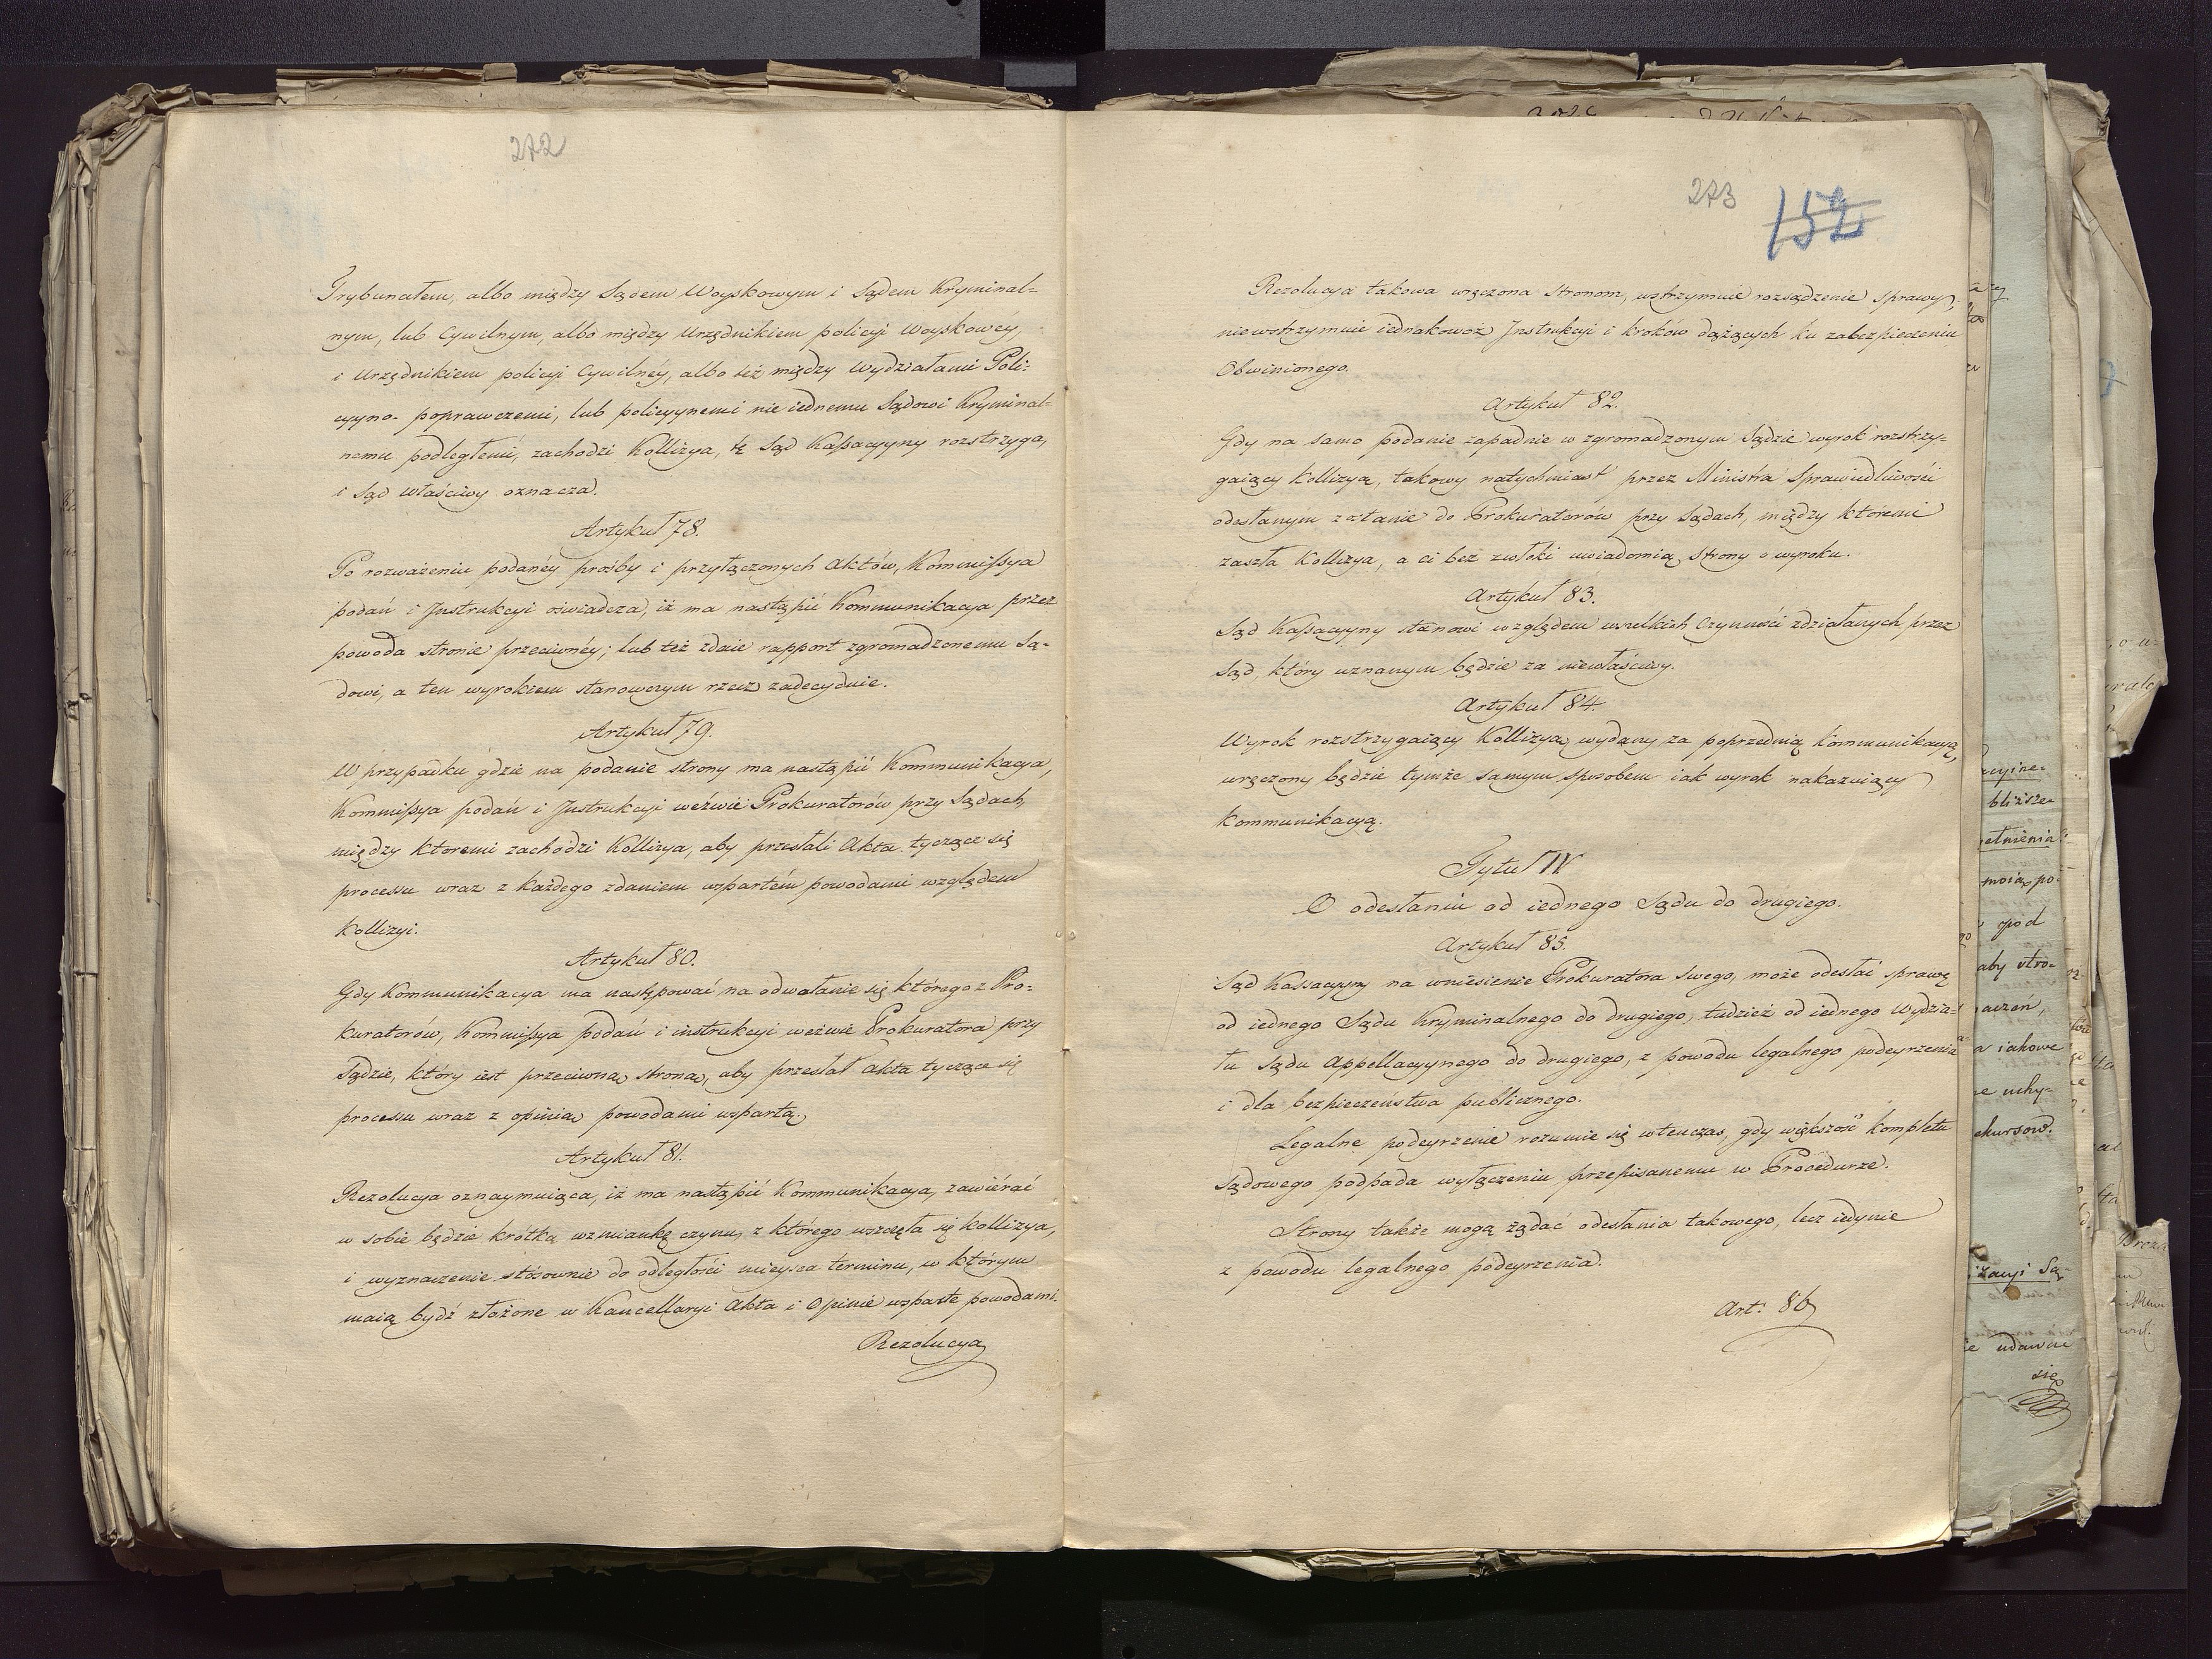 272
Trybunałem, albo między Sądem Woyskowym i Sądem Kryminal=
nym, lub Cywilnym, albo między Urzędnikiem policyi Woyskowéy,
i Urzędnikiem policyi Cywilnéy, albo też między Wydziałami Poli=
cyyno-poprawczemi, lub policyynemi nie iednemu Sądowi Kryminal=
nemu podległemi, zachodzi Kollizya, tę Sąd Kassacyyny rozstrzyga,
i Sąd właściwy oznacza.
Artykuł 78.
Po rozważeniu podanéy prośby i przyłączonych Aktów, Kommissya
podań i Instrukcyi oświadcza, iż ma nastąpić Kommunikacya przez
powoda stronie przeciwnéy; lub też zdaie rapport zgromadzonemu Są-
dowi, a ten wyrokiem stanowczym rzecz zadecyduie.
Artykuł 79.
W przypadku gdzie na podanie strony ma nastąpić Kommunikacya,
Kommissya podań i Instrukcyi weźwie Prokuratorów przy Sądach,
między któremi zachodzi Kollizya, aby przesłali Akta tyczące się
processu wraz z każdego zdaniem wspartém powodami względem
Kollizyi.
Artykuł 80.
Gdy Kommunikacya ma następować na odwołanie się którego z Pro=
kuratorów, Kommissya podań i instrukcyi weźwie Prokuratora przy
Sądzie, który iest przeciwną stroną, aby przesłał Akta tyczące się
processu wraz z opinią powodami wspartą.
Artykuł 81.
Rezolucya oznaymuiąca, iż ma nastąpić Kommunikacya, zawiérać
w sobie będzie krótką wzmiankę czynu, z którego wszczęła się kollizya,
i wyznaczenie stósownie do odległości mieysca terminu, w którym
maią bydź złożone w Kancellaryi Akta i Opinie wsparte powodami.
Rezolucya
273
152
Rezolucya takowa wręczona stronom, wstrzymuie rozsądzenie sprawy;
niewstrzymuie iednakowoż Instrukcyi i kroków dążących ku zabezpieczeniu
Obwinionego.
Artykuł 82.
Gdy na samo podanie zapadnie w zgromadzonym Sądzie wyrok rozstrzy=
gaiący Kollizyą, takowy natychmiast przez Ministra Sprawiedliwości
odesłanym zostanie do Prokuratorów przy Sądach, między któremi
zaszła Kollizya, a ci bez zwłoki uwiadomią Strony o wyroku.
Artykuł 83.
Sąd Kassacyyny stanowi względem wszelkich Czynności zdziałanych przez
Sąd, który uznanym będzie za niewłaściwy.
Artykuł 84.
Wyrok rozstrzygaiący Kollizyą, wydany za poprzednią kommunikacyą,
wręczony będzie tymże samym sposobem iak wyrok nakazuiący
Kommunikacyą.
Tytuł IV
O odesłaniu od iednego Sądu do drugiego.
Artykuł 85.
Sąd Kassacyyny na wniesienie Prokuratora swego, może odesłać sprawę
od iednego Sądu Kryminalnego do drugiego, tudzież od iednego Wydzia=
łu Sądu Appellacyynego do drugiego, z powodu legalnego podeyrzenia
i dla bezpieczeństwa publicznego.
Legalne podeyrzenie rozumie się wtenczas, gdy większość kompletu
Sądowego podpada wyłączeniu przepisanemu w Procedurze.
Strony także mogą żądać odesłania takowego, lecz iedynie
z powodu legalnego podeyrzenia.
Art: 86
bliższe
pod
aby stro=
iakowe
udawać
się